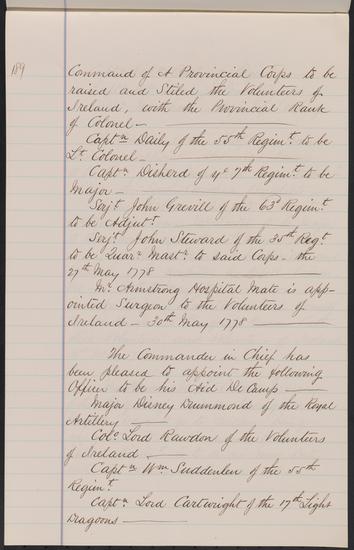 189
Command of A Provincial Corps to be
raised and Stiled the Volunteers of
Ireland, with the Provincial Rank
of Colonel —
Captn Daily of the 55th Regimt. to be
Lt. Colonel —
Captn. Disherd of ye 7th Regimt. to be
Major —
Serjt. John Grevill of the 63d Regimt.
to be Adjutt.
Serjt. John Steward of the 35th Regt.
to be Quarr. Mastr. to said Corps — the
27th May 1778 —
Mr. Armstrong Hospital Mate is app-
ointed Surgeon to the Volunteers of
Ireland — 30th May 1778 —
The Commander in Chief has
been pleased to appoint the following
Officer to be his Aid De Camp —
Major Disney Drummond of the Royal
Artillery —
Colo. Lord Rawdon of the Volunteers
of Ireland —
Captn Wm. Suddenlen of the 55th
Regimt.
Captn. Lord Cartwright of the 17th Light
Dragoons —